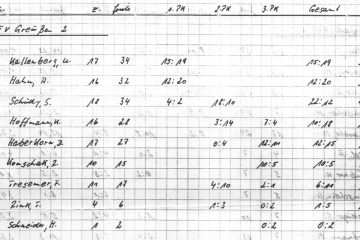 E. Spiele 1.PK 2.PK 3.PK Gesamt
SV Greußen 2
Kallenberg, U. 17 34 15:19 15:19
Hahn, A. 16 32 12:20 12:20
Schüdy, S. 18 34 4:2 18:10 22:12
Hoffmann, K. 16 28 3:14 7:4 10:18
Haberkorn, J. 17 27 0:4 12:11 12:15
Komschak, J. 10 15 10:5 10:5
Tresemer, F. 11 17 4:10 2:1 6:11
Zink, T. 4 6 1:3 0:2 1:5
Schneider, H. 1 2 0:2 0:2